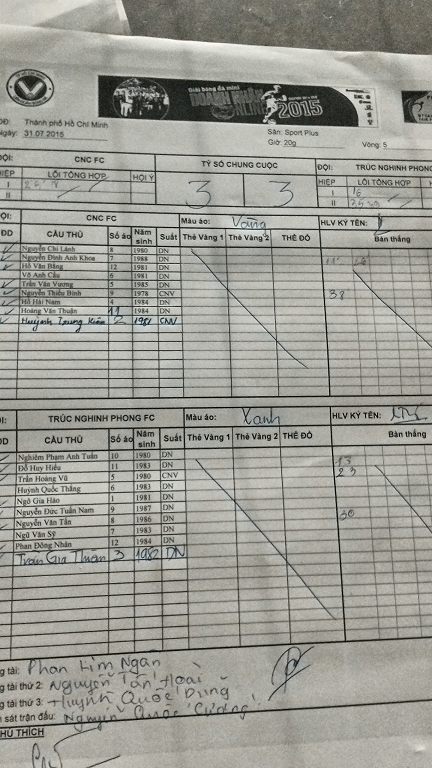 Giải bóng đá mini
2015
Thành phố Hồ Chí Minh
Ngày: 31.07.2015
Sân: Sport Plus
Giờ: 20g
Vòng: 5
ĐỘI: CNC FC
TỶ SỐ CHUNG CUỘC
ĐỘI: TRÚC NGHINH PHONG
HIỆP LỖI TỔNG HỢP HỘI Ý
3 3
HIỆP LỖI TỔNG HỢP
I
II
I 16
II
CNC FC
Màu áo: Vàng
HLV KÝ TÊN:
CẦU THỦ Số áo Năm sinh Suất Thẻ Vàng 1 Thẻ Vàng 2 THẺ ĐỎ Bàn thắng
Nguyễn Chí Lành 8 1980 DN
Nguyễn Đình Anh Khoa 7 1988 DN
Hồ Văn Bằng 12 1981 DN
Võ Anh Cầu 6 1981 DN
Trần Văn Vương 5 1985 DN
Nguyễn Thiếu Bình 9 1978 CNV 38
Hồ Hải Nam 4 1984 DN
Hoàng Văn Thuận 11 1984 DN
Huỳnh Trung Kiên 2 1981 CNV
TRÚC NGHINH PHONG FC
Màu áo: Xanh
HLV KÝ TÊN:
CẦU THỦ Số áo Năm sinh Suất Thẻ Vàng 1 Thẻ Vàng 2 THẺ ĐỎ Bàn thắng
Nghiêm Phạm Anh Tuấn 10 1980 DN 13
Đỗ Huy Hiếu 11 1983 DN 23
Trần Hoàng Vũ 5 1980 CNV
Huỳnh Quốc Thắng 6 1983 DN
Ngô Gia Hào 1 1981 DN
Nguyễn Đức Tuấn Nam 9 1987 DN 30
Nguyễn Văn Tấn 8 1986 DN
Ngũ Văn Sỹ 7 1983 DN
Phan Đông Nhân 12 1984 DN
Trần Gia Thiện 3 1982 DN
Phan Kim Ngân
tài thứ 2: Nguyễn Tấn Hoài
tài thứ 3: Huỳnh Quốc Dũng
sát trận đấu: Nguyễn Quốc Cường
GHI THÍCH